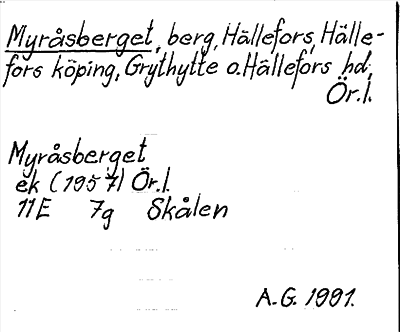 Myråsberget, berg, Hällefors, Hälle-
fors köping, Grythytte o. Hällefors hd,
Ör.l.
Myråsberget
ek (1957) Ör.l.
11E 7g Skålen
A.G. 1991.